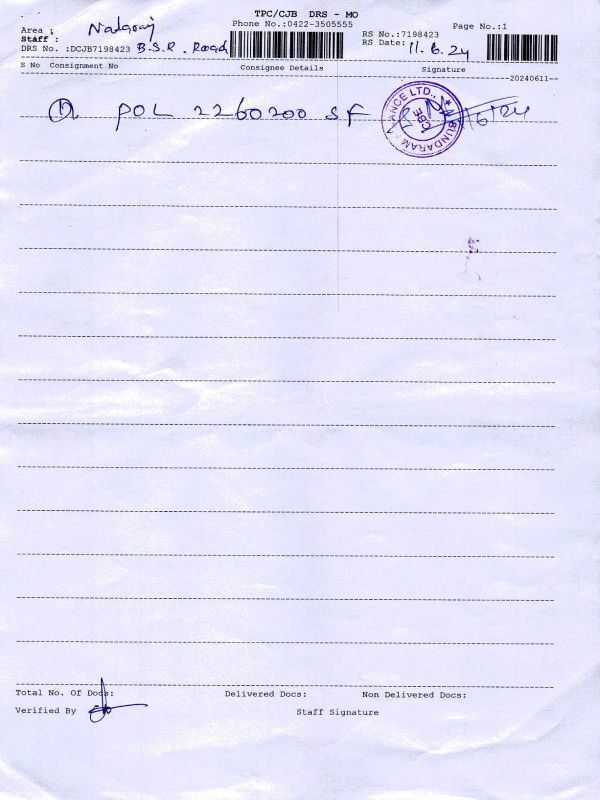 TPC/CJB DRS - MO
Phone No.:0422-3505555
Page No.:1
Area :
Staff :
RS No.:7198423
RS Date: 11.6.24
DRS No. :DCJB7198423 B.S.R. Road
S No Consignment No Consignee Details Signature
--20240611--
POL 2260200 SF
SUNDARAM
ANCE LTD.,
CBE
Total No. Of Docs: Delivered Docs: Non Delivered Docs:
Verified By Staff Signature